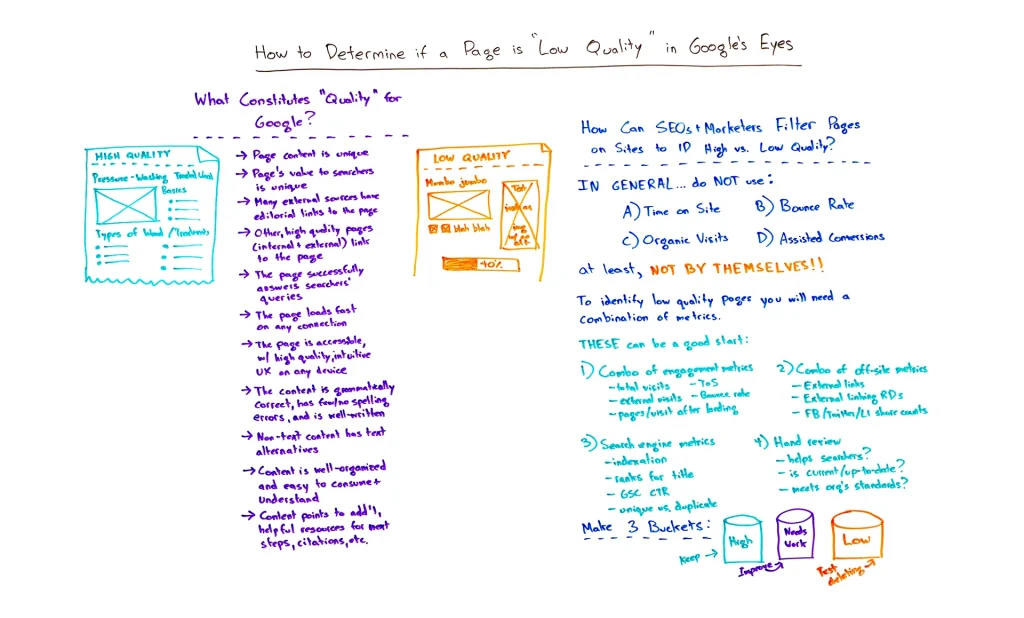 How to Determine if a Page is "Low Quality" in Google's Eyes
What Constitutes "Quality" for
Google?
HIGH QUALITY
Pressure-Washing
Basics
Types of Wood/Treatments
→ Page content is unique
→ Page's value to searchers
is unique
→ Many external sources have
editorial links to the page
→ Other, high quality pages
(internal + external) link
to the page
→ The page successfully
answers searchers'
queries
→ The page loads fast
on any connection
→ The page is accessible,
w/ high quality, intuitive
UX on any device
→ The content is grammatically
correct, has few/no spelling
errors, and is well-written
→ Non-text content has text
alternatives
→ Content is well-organized
and easy to consume +
understand
→ Content points to add'l,
helpful resources for next
steps, citations, etc.
LOW QUALITY
Mumbo jumbo
blah blah
Text
in
an
img
40%
How Can SEOs + Marketers Filter Pages
on Sites to ID High vs. Low Quality?
IN GENERAL... do NOT use:
A) Time on Site
B) Bounce Rate
C) Organic Visits
D) Assisted Conversions
at least, NOT BY THEMSELVES!!
To identify low quality pages you will need a
combination of metrics.
THESE can be a good start:
1) Combo of engagement metrics
- total visits - ToS
- external visits - Bounce rate
- pages/visit after landing
2) Combo of off-site metrics
- External links
- External linking RDs
- FB/Twitter/LI share counts
3) Search engine metrics
- indexation
- ranks for title
- GSC CTR
- unique vs. duplicate
4) Hand review
- helps searchers?
- is current/up-to-date?
- meets org's standards?
Make 3 Buckets:
Keep →
High
Improve →
Needs
Work
Test
deleting →
Low